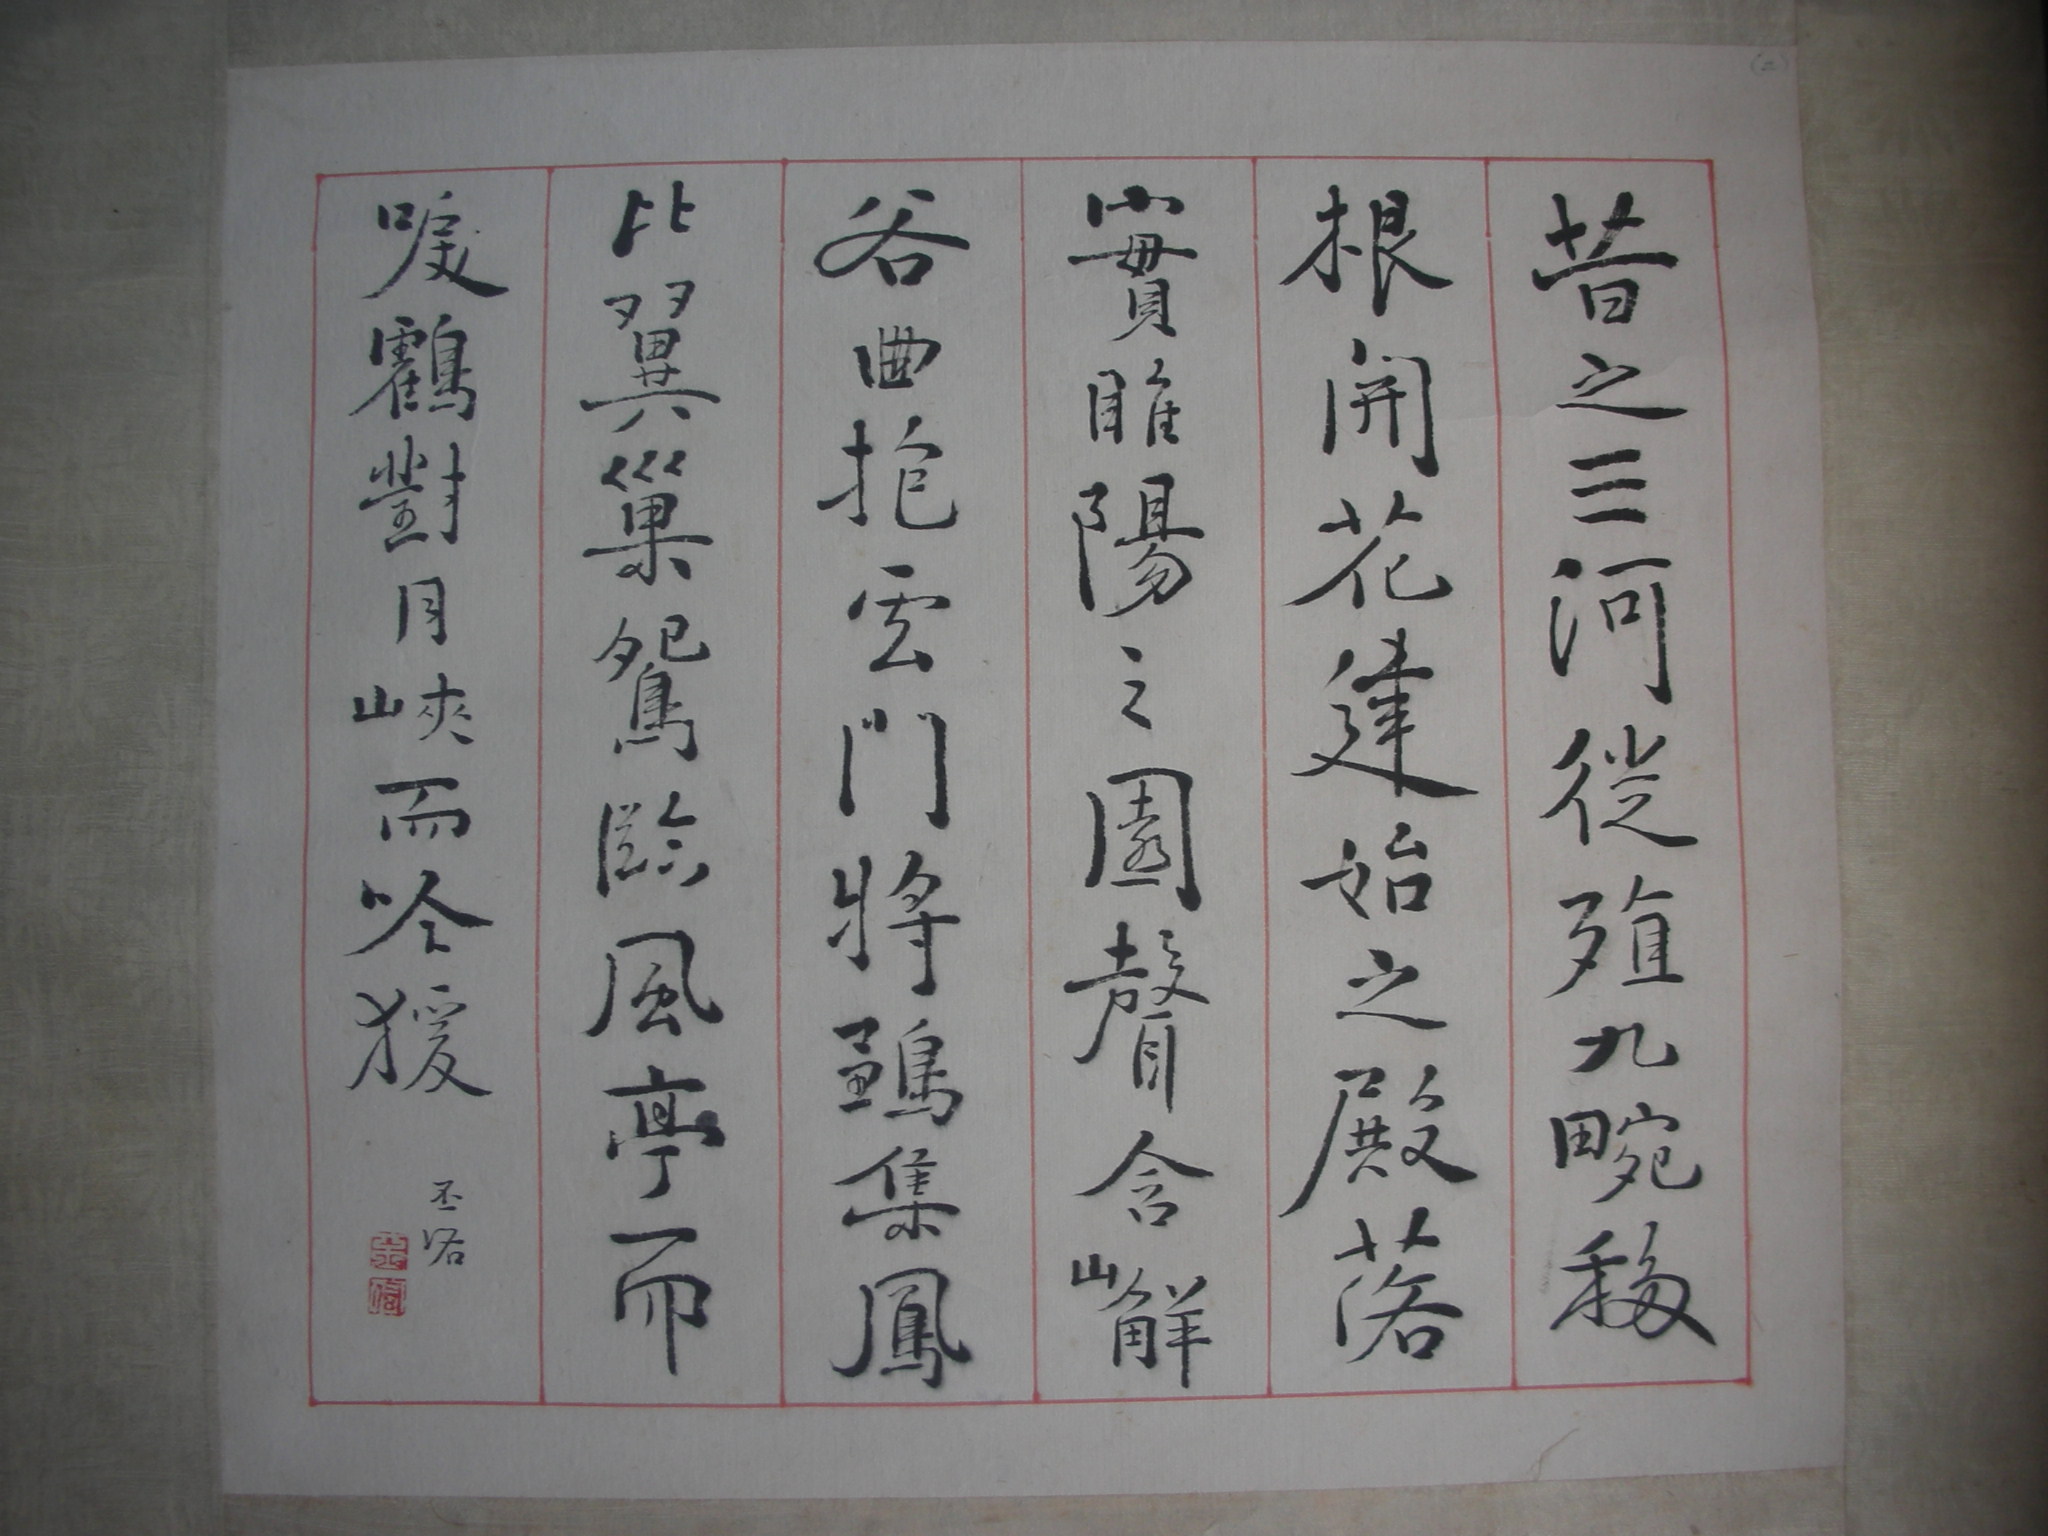 (2)
昔之三河徙殖九畹移
根開花建始之殿落
實睢陽之園聲含嶰
谷曲抱云門將鶵集鳳
比翼巢鴛臨風亭而
唳鶴對月峽而吟猨